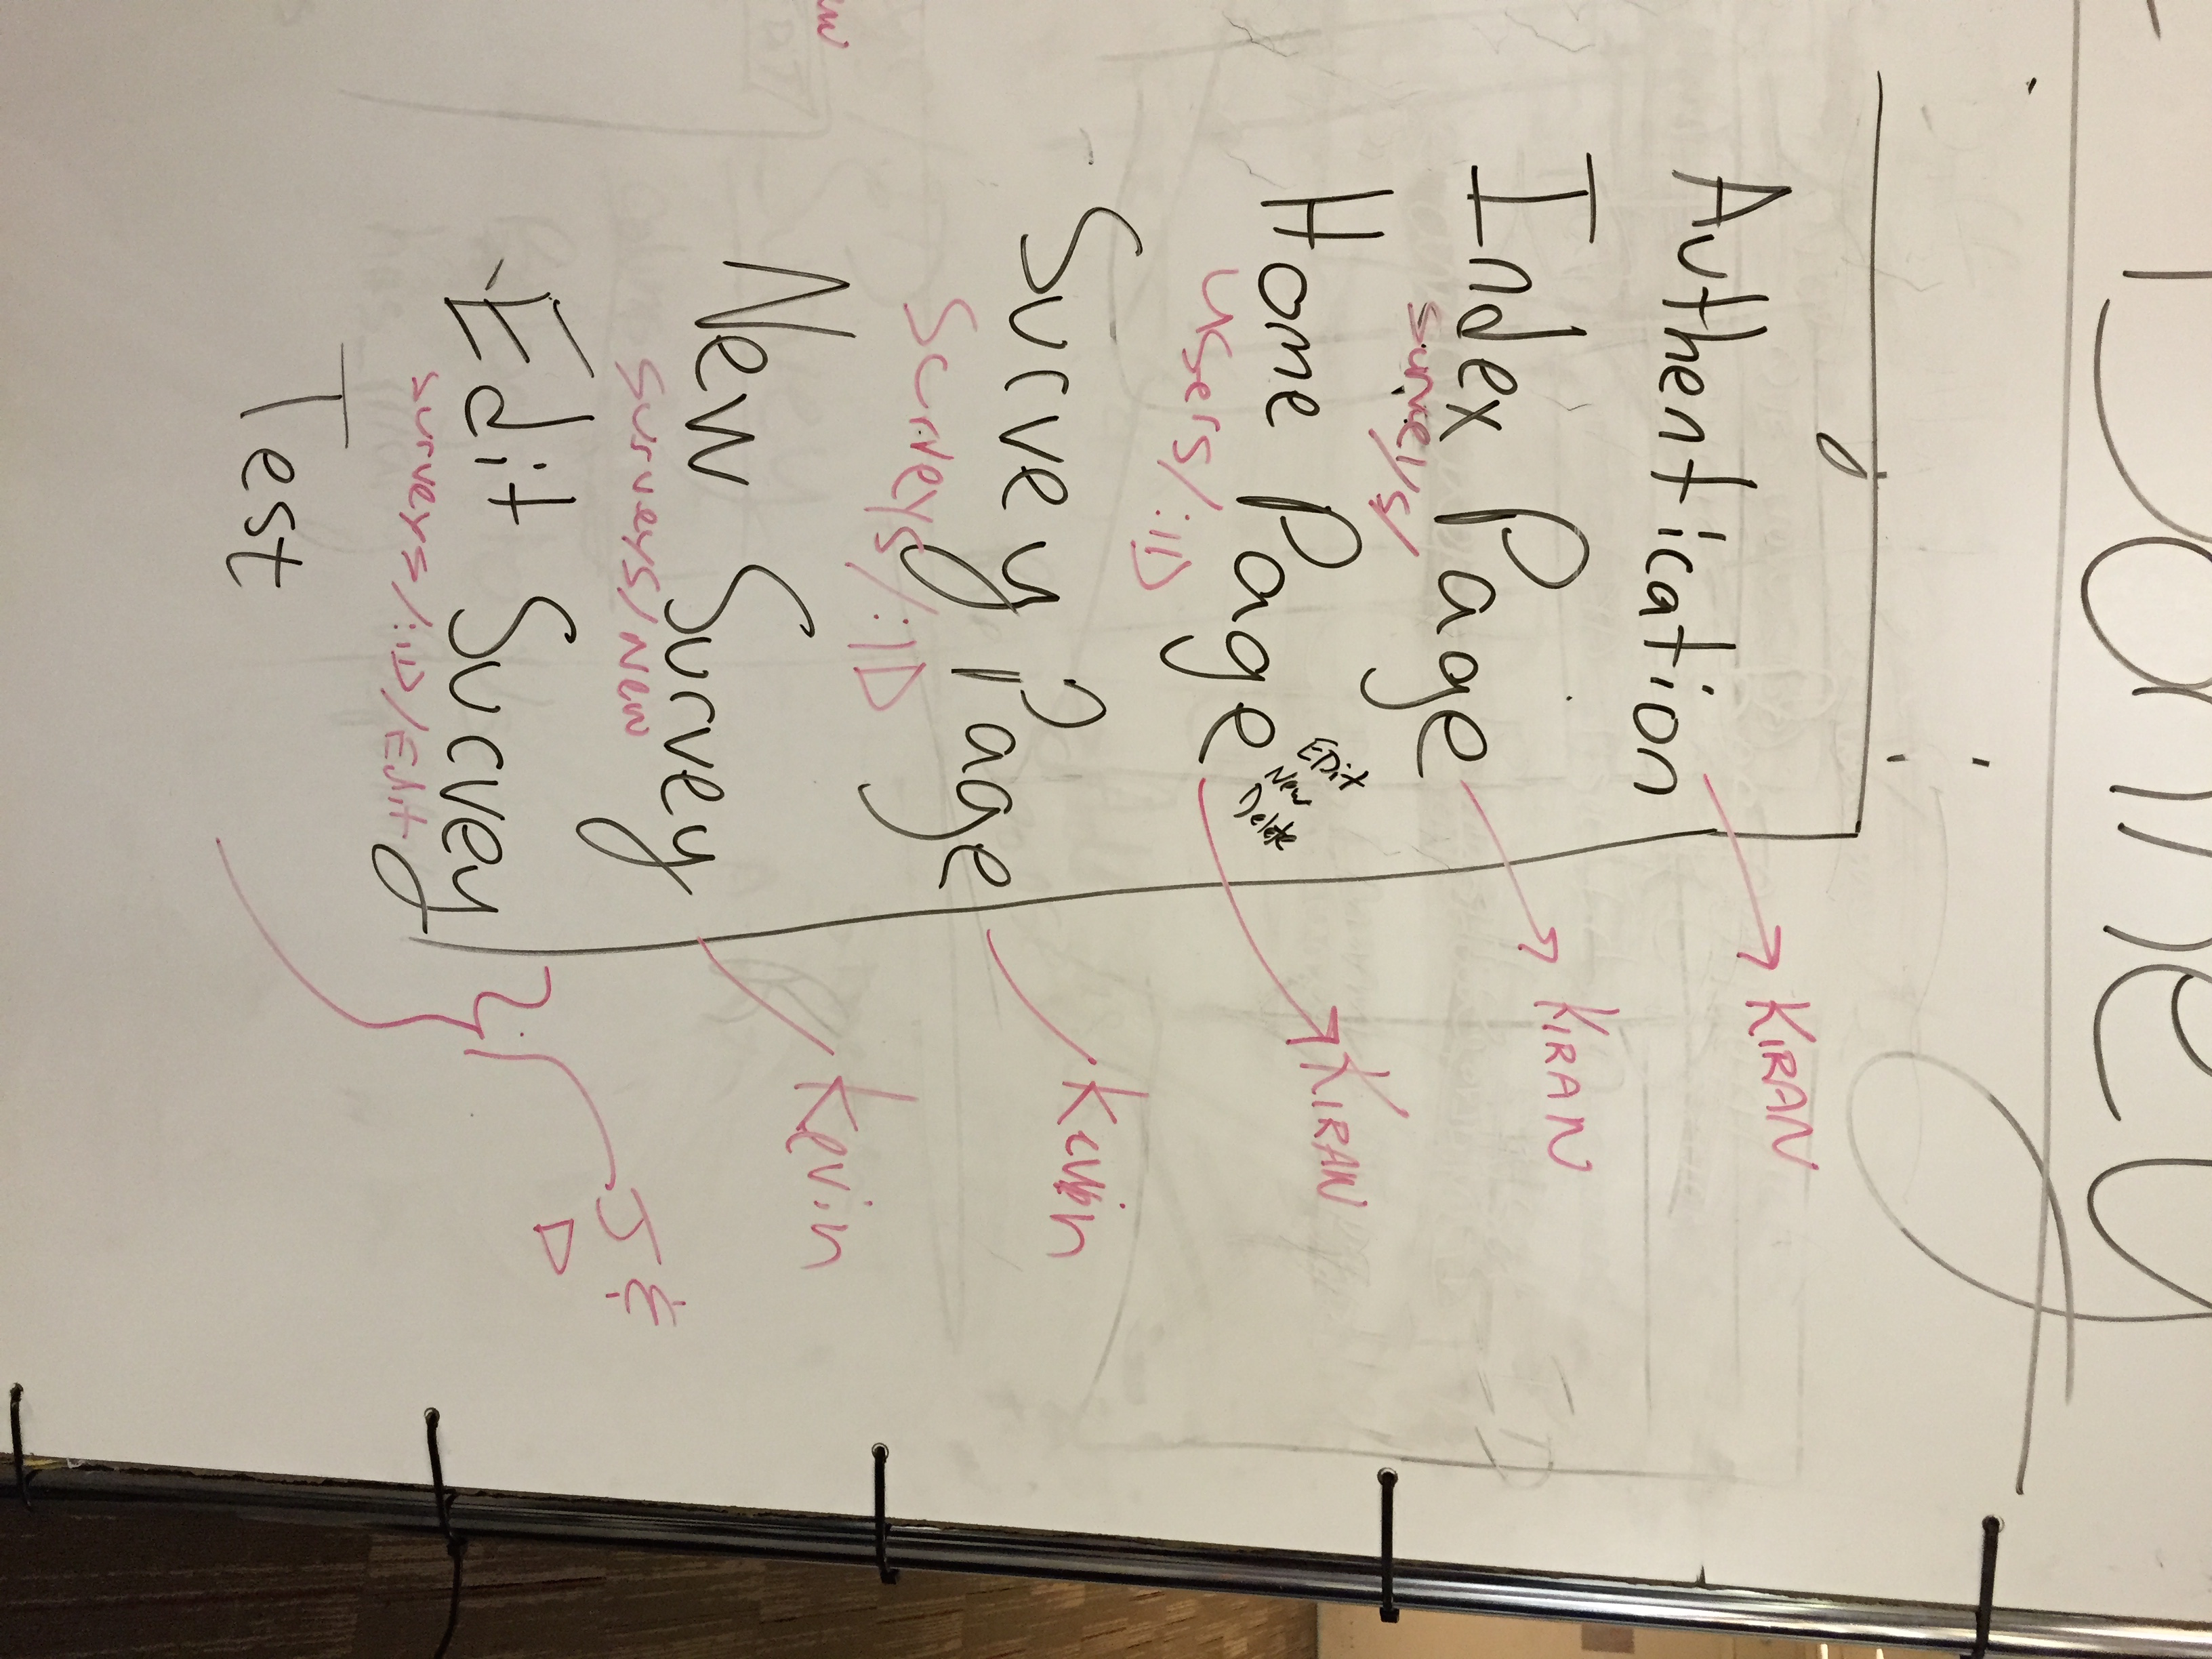 Authentication → KIRAN
Index Page → KIRAN
surveys/
Home Page Edit New Delete → KIRAN
users/:ID
Survey Page Kevin
Surveys/:ID
New Survey Kevin
surveys/New
Edit Survey J &
surveys/:iD/Edit D
Test